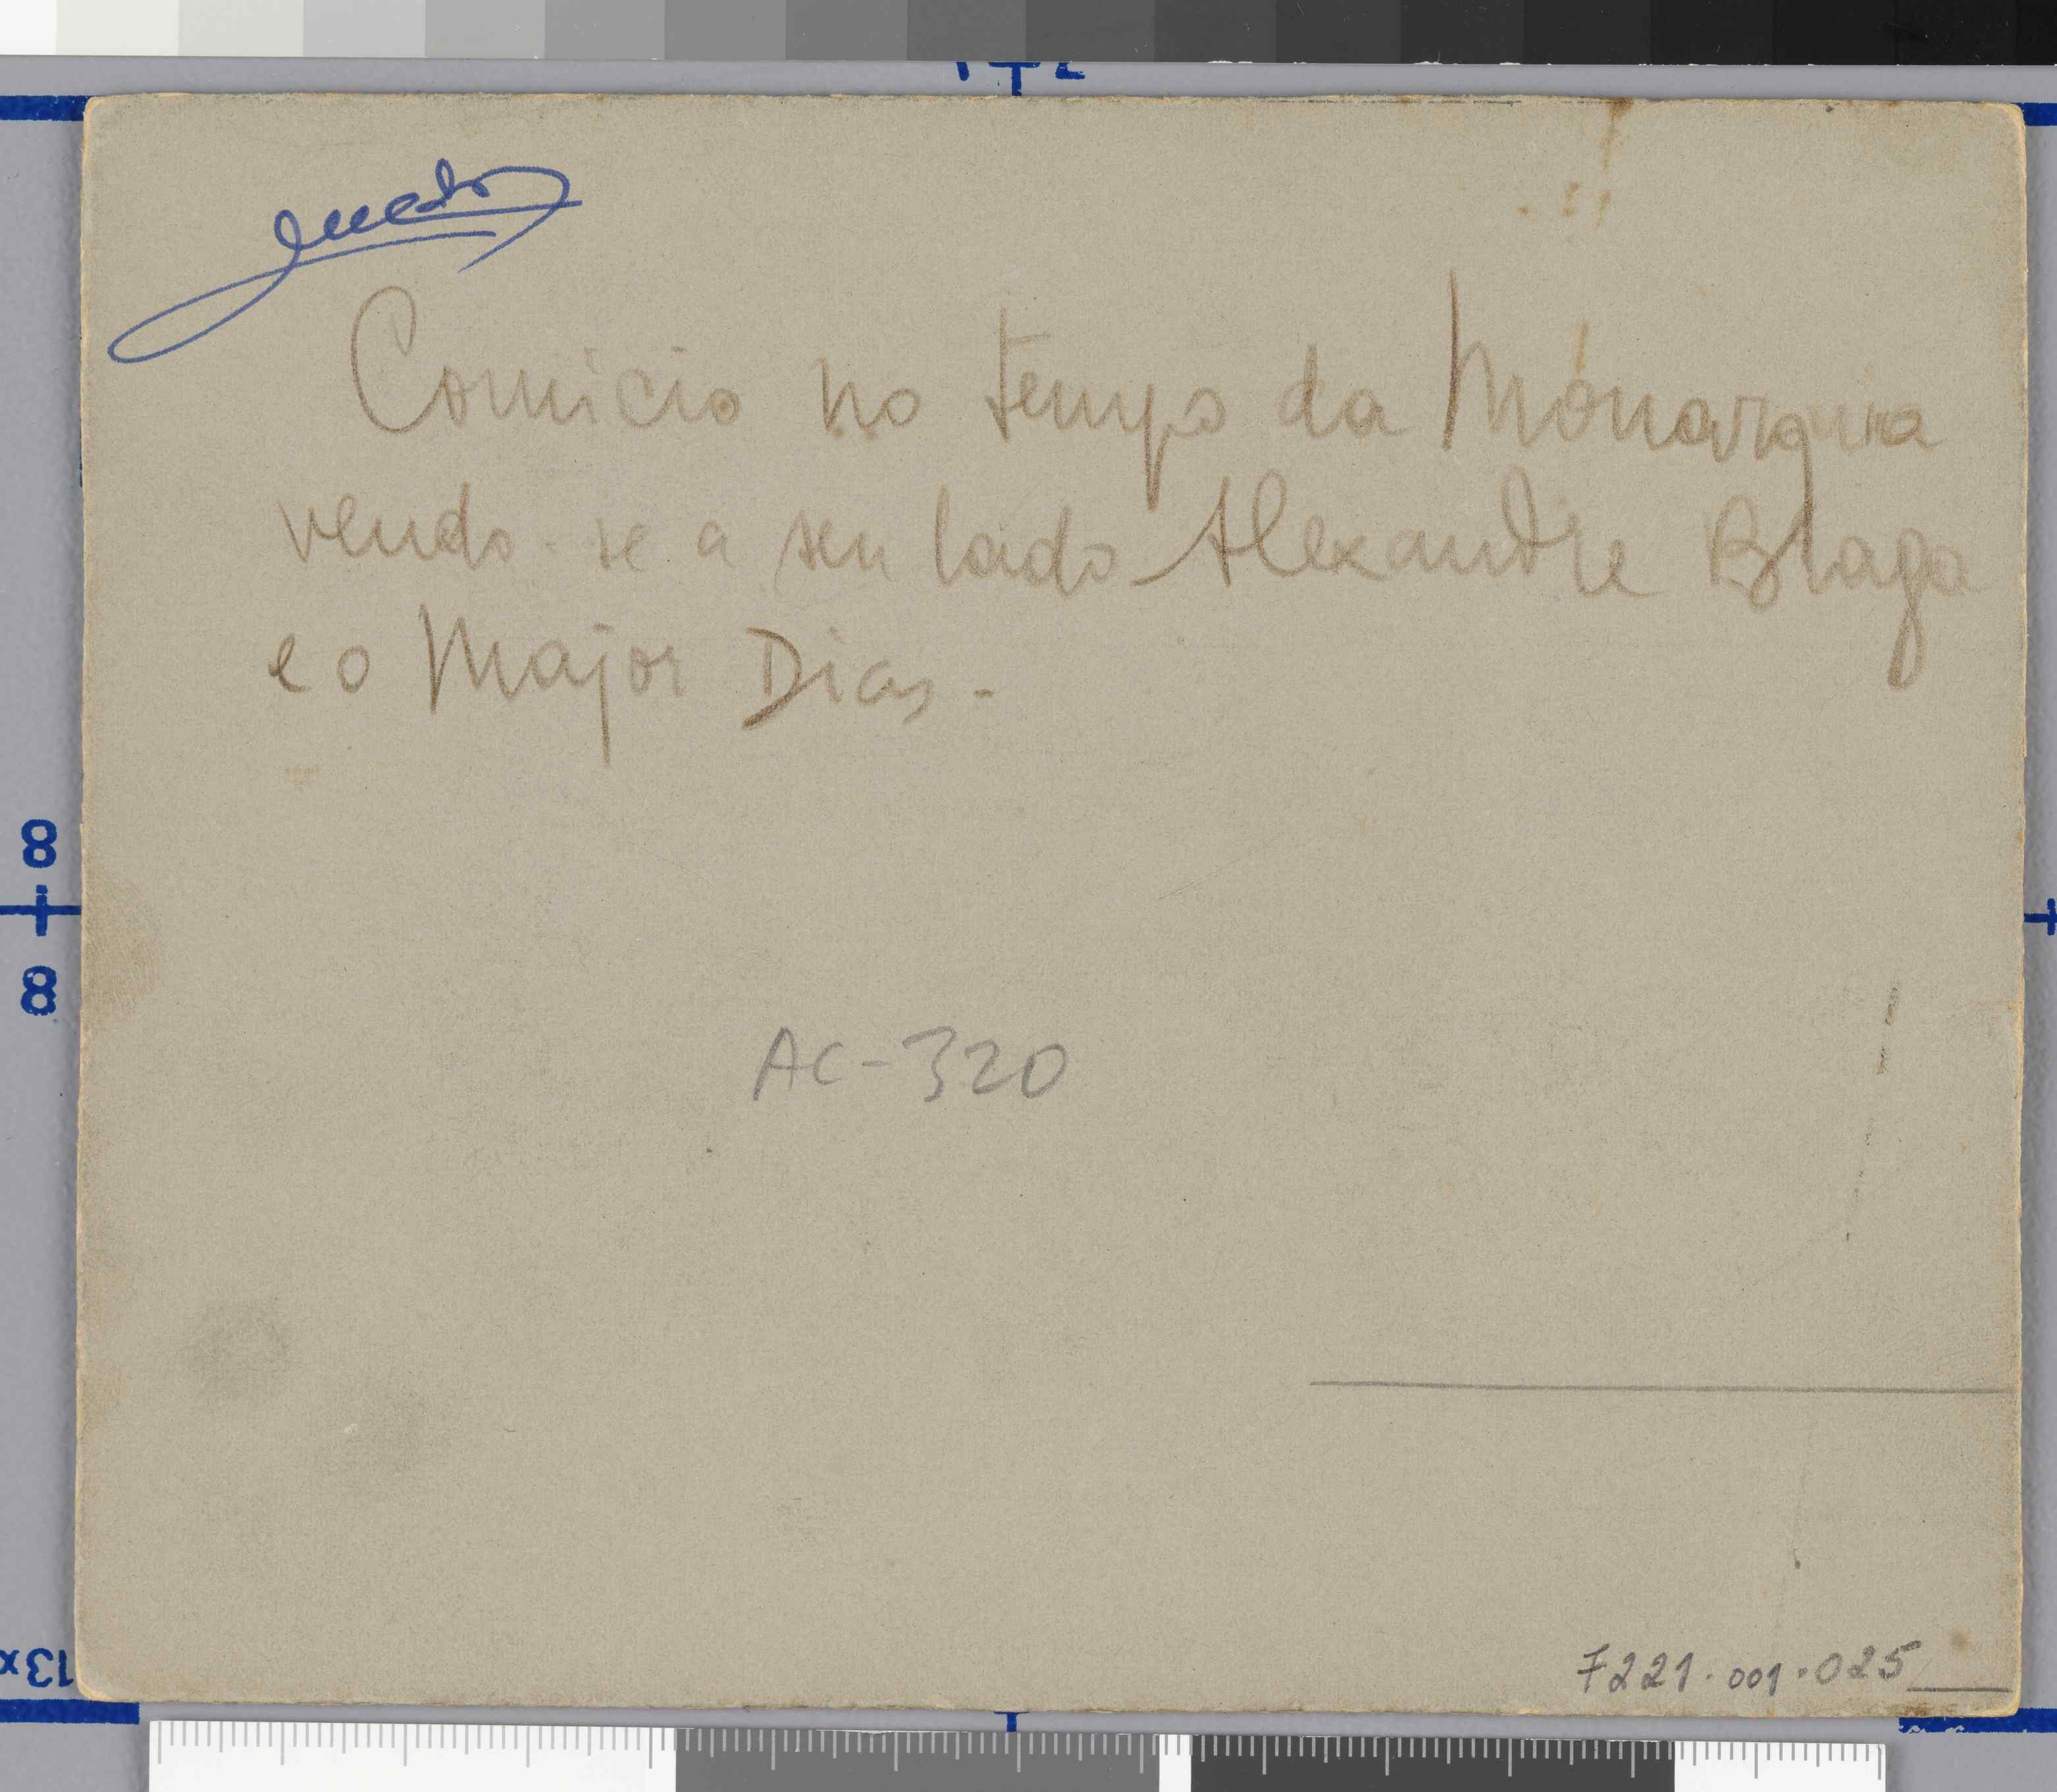 Comicio no tempo da Monarquia
vendo-se a seu lado Alexandre Braga
e o Major Dias.
8
8
AC-320
13x
F221.001.025